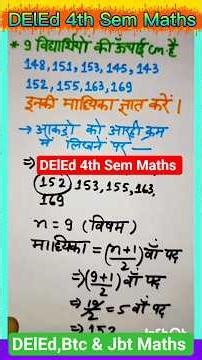 DElEd 4th Sem Maths
* 9 विद्यार्थियो की ऊंचाई cm है
148, 151, 153, 145, 143
152, 155, 163, 169
इनकी माध्यिका ज्ञात करें ।
→ आकडो को आरोही क्रम
में लिखने पर —
DElEd 4th Sem Maths
152 153, 155, 163,
169
n = 9 (विषम)
माध्यिका = (n+1/2) वाँ पद
⇒ (9+1/2) वाँ पद
⇒ 10/2 = 5 वाँ पद
⇒ 152
DElEd,Btc & Jbt Maths